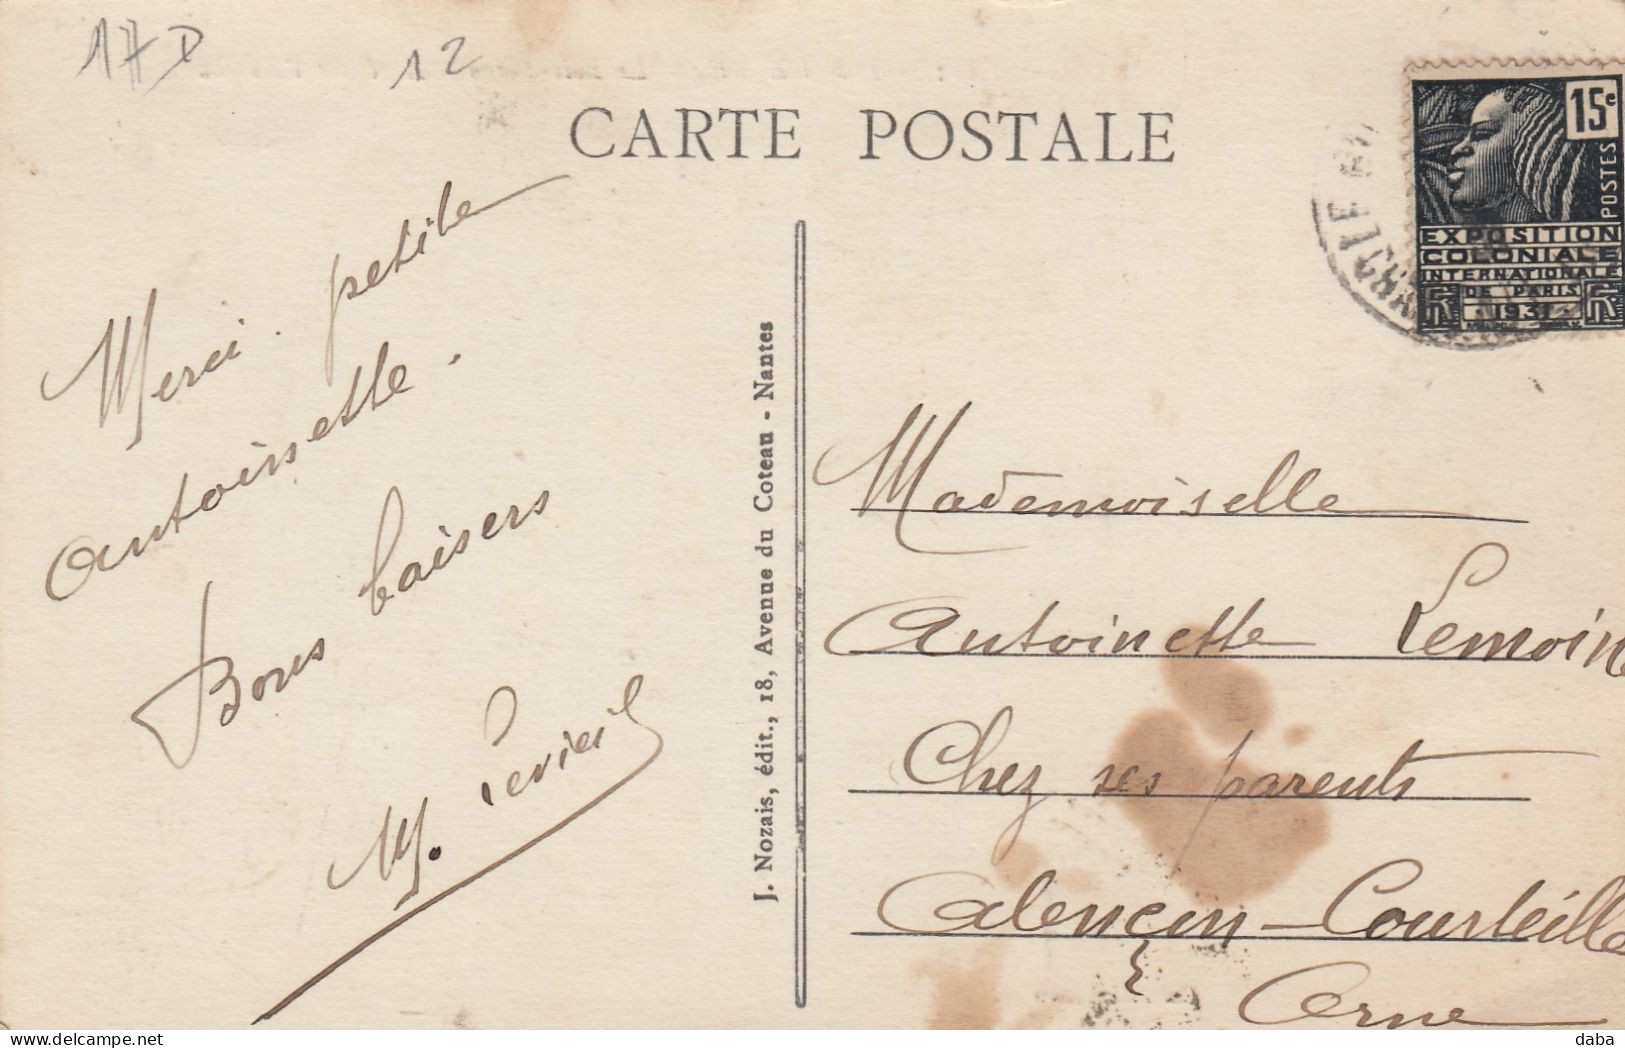 17D
12
CARTE POSTALE
15c
POSTES
EXPOSITION
COLONIALE
INTERNATIONALE
DE PARIS
1931
Merci petite
Antoinette.
Bons baisers
M.
J. Nozais, édit., 18, Avenue du Coteau - Nantes
Mademoiselle
Antoinette Lemoine
Chez ses parents
Alençon-Courteille
Orne
delcampe.net
daba